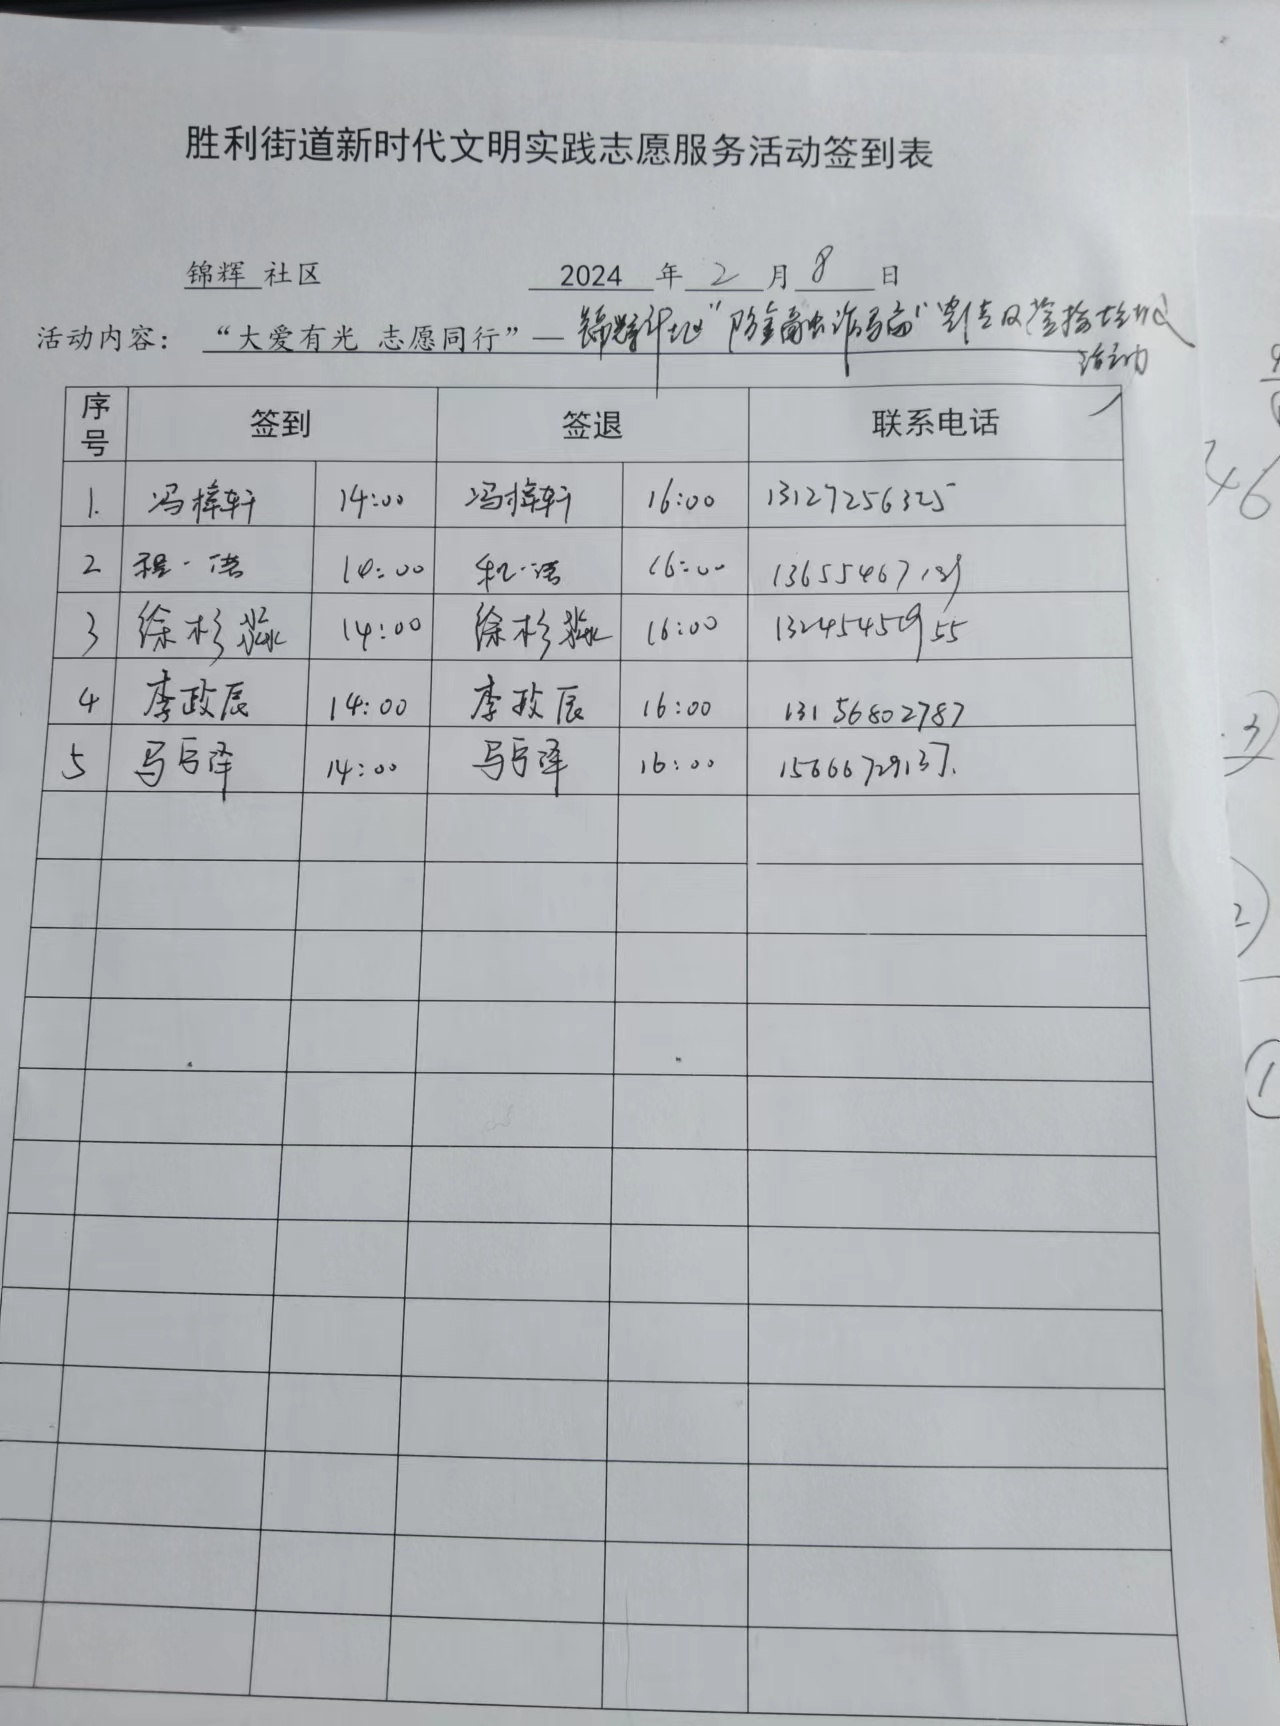 胜利街道新时代文明实践志愿服务活动签到表
锦辉 社区 2024 年 2 月 8 日
活动内容： “大爱有光 志愿同行”— 锦辉社区“防金融诈骗”宣传及
活动
序号 签到 签退 联系电话
1. 冯梓轩 14:00 冯梓轩 16:00 13127256325
2 程一诺 14:00 程一诺 16:00
3 徐杉淼 14:00 徐杉淼 16:00
4 李政辰 14:00 李政辰 16:00 13156802787
5 14:00 16:00 15666729137.
46
3)
2)
①